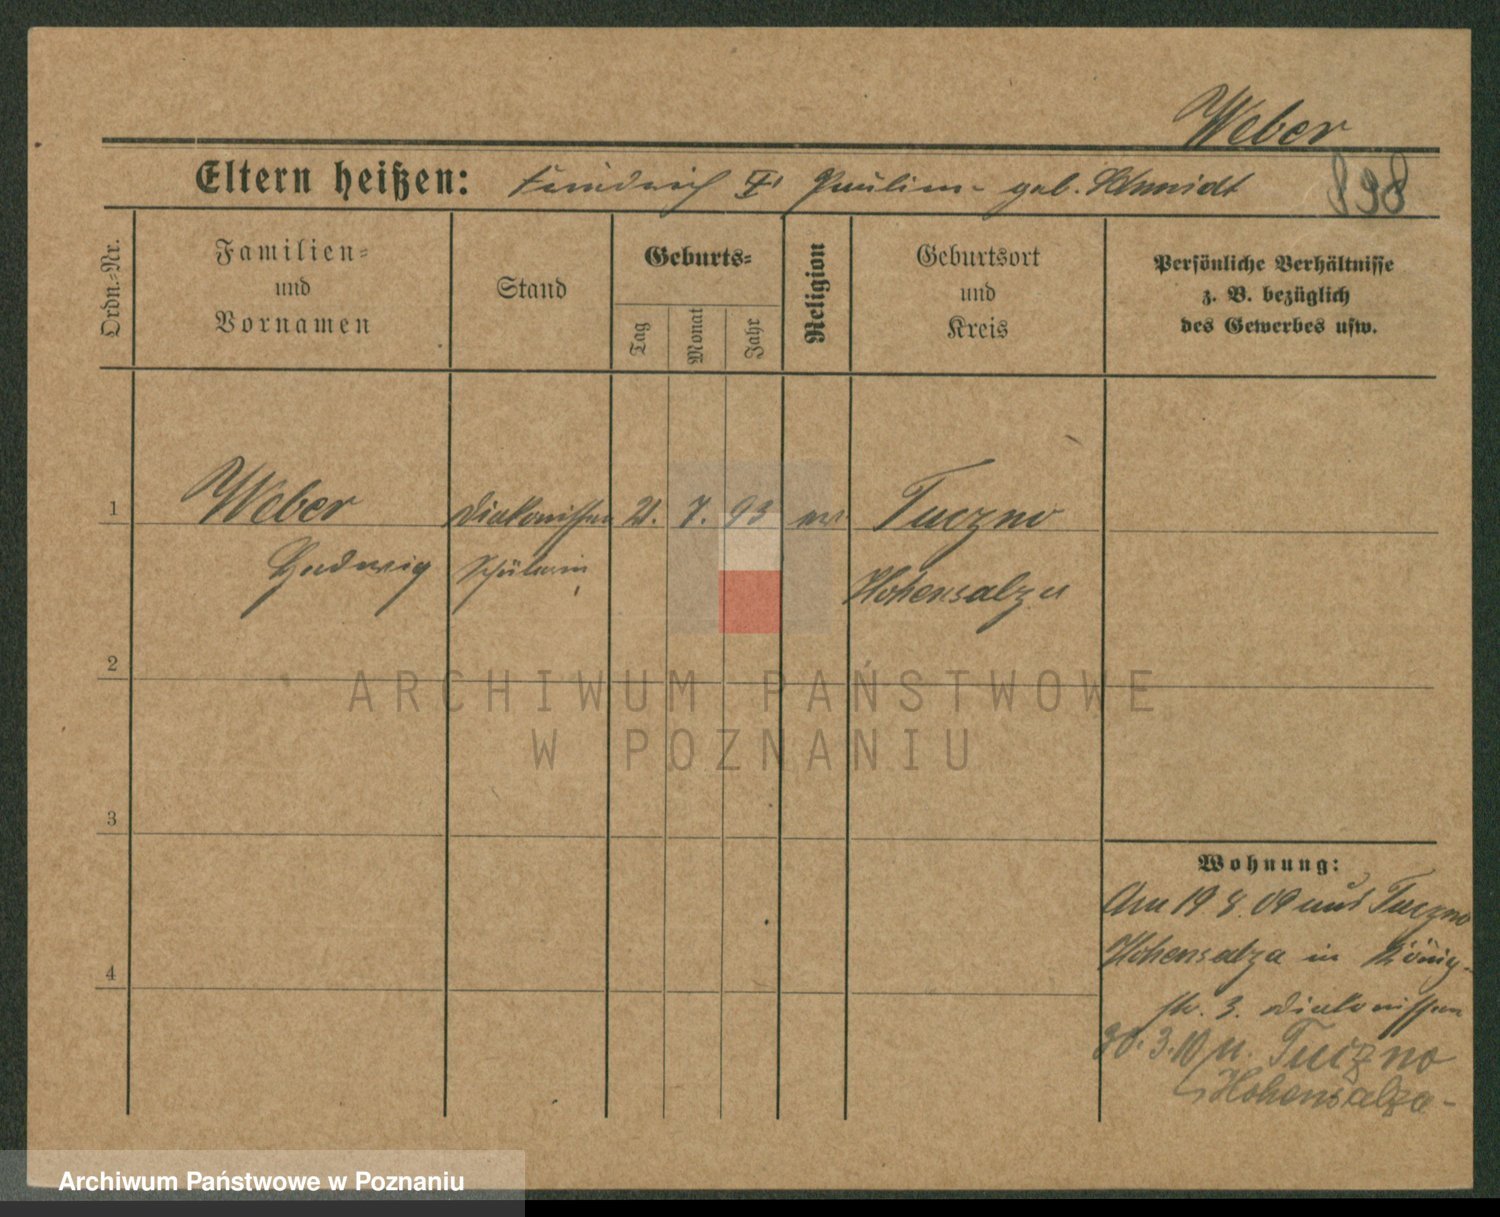 Weber
Eltern heißen: Friedrich & Pauline geb. Schmidt 898
Ordn.-Nr.
Familien-
und
Vornamen
Stand
Geburts-
Tag
Monat
Jahr
Religion
Geburtsort
und
Kreis
Persönliche Verhältnisse
z. B. bezüglich
des Gewerbes usw.
1 Weber Diakonissen 21. 7. 93 ev Tuczno
Hedwig Schülerin Hohensalza
2
3
4
Wohnung:
Am 19 8. 09 aus Tuczno
Hohensalza in König-
str. 3. Diakonissen
30. 3. 10 n. Tuczno
Hohensalza-
ARCHIWUM PAŃSTWOWE
W POZNANIU
Archiwum Państwowe w Poznaniu